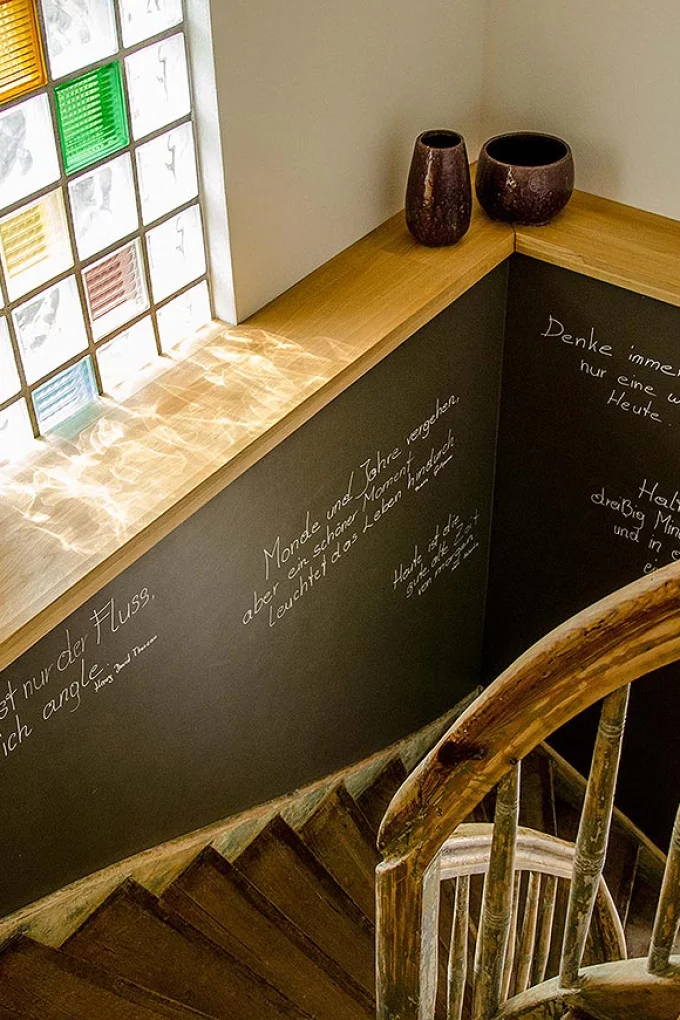 st nur der Fluss,
ich angle.
Henry David Thoreau
Monde und Jahre vergehen,
aber ein schöner Moment
leuchtet das Leben hindurch
Heute ist die
gute alte Zeit
von morgen
Denke immer
nur eine w
Heute.
Halt
dreißig Min
und in e
ei